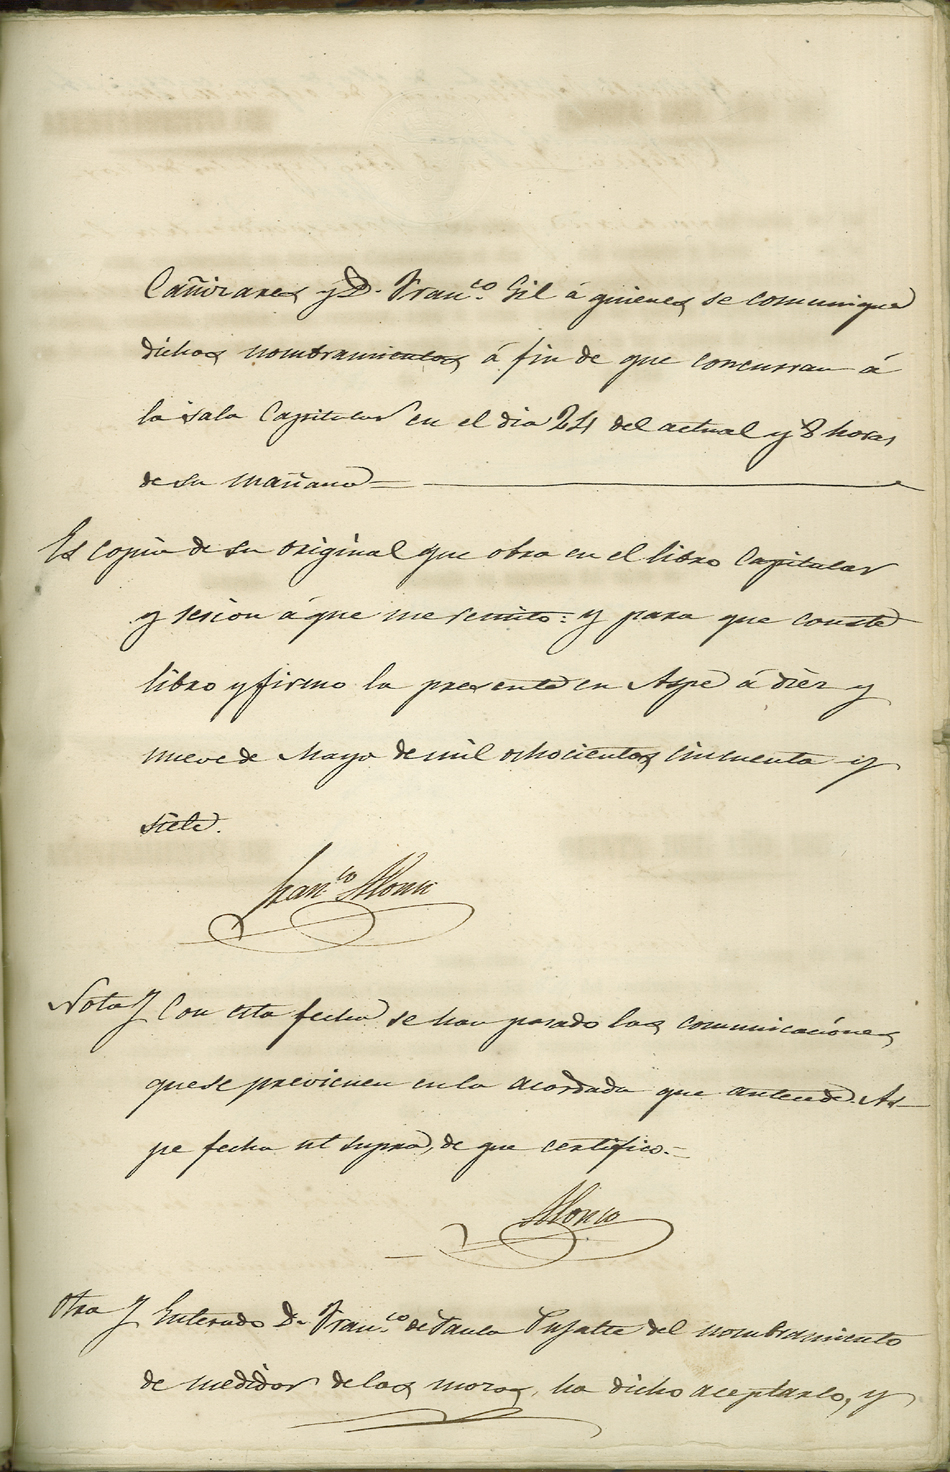 Cañizares y D. Franco. Gil á quienes se comunique
dichos nombramientos á fin de que concurran á
la sala Capitular en el dia 24 del actual y 8 horas
de su mañana =
Es copia de su original que obra en el libro Capitular
y sesion á que me remito: y para que conste
libro y firmo la presente en Aspe á diez y
nueve de Mayo de mil ochocientos cincuenta y
siete.
Franco.
Nota} Con esta fecha se han pasado las comunicaciónes
que se previenen en la acordada que antecede. As-
pe fecha ut supra, de que certifico.=
Otra} Enterado Dn. Franco. de Paula Pujalte del nombramiento
de medidor de los mozos, ha dicho aceptarlo, y